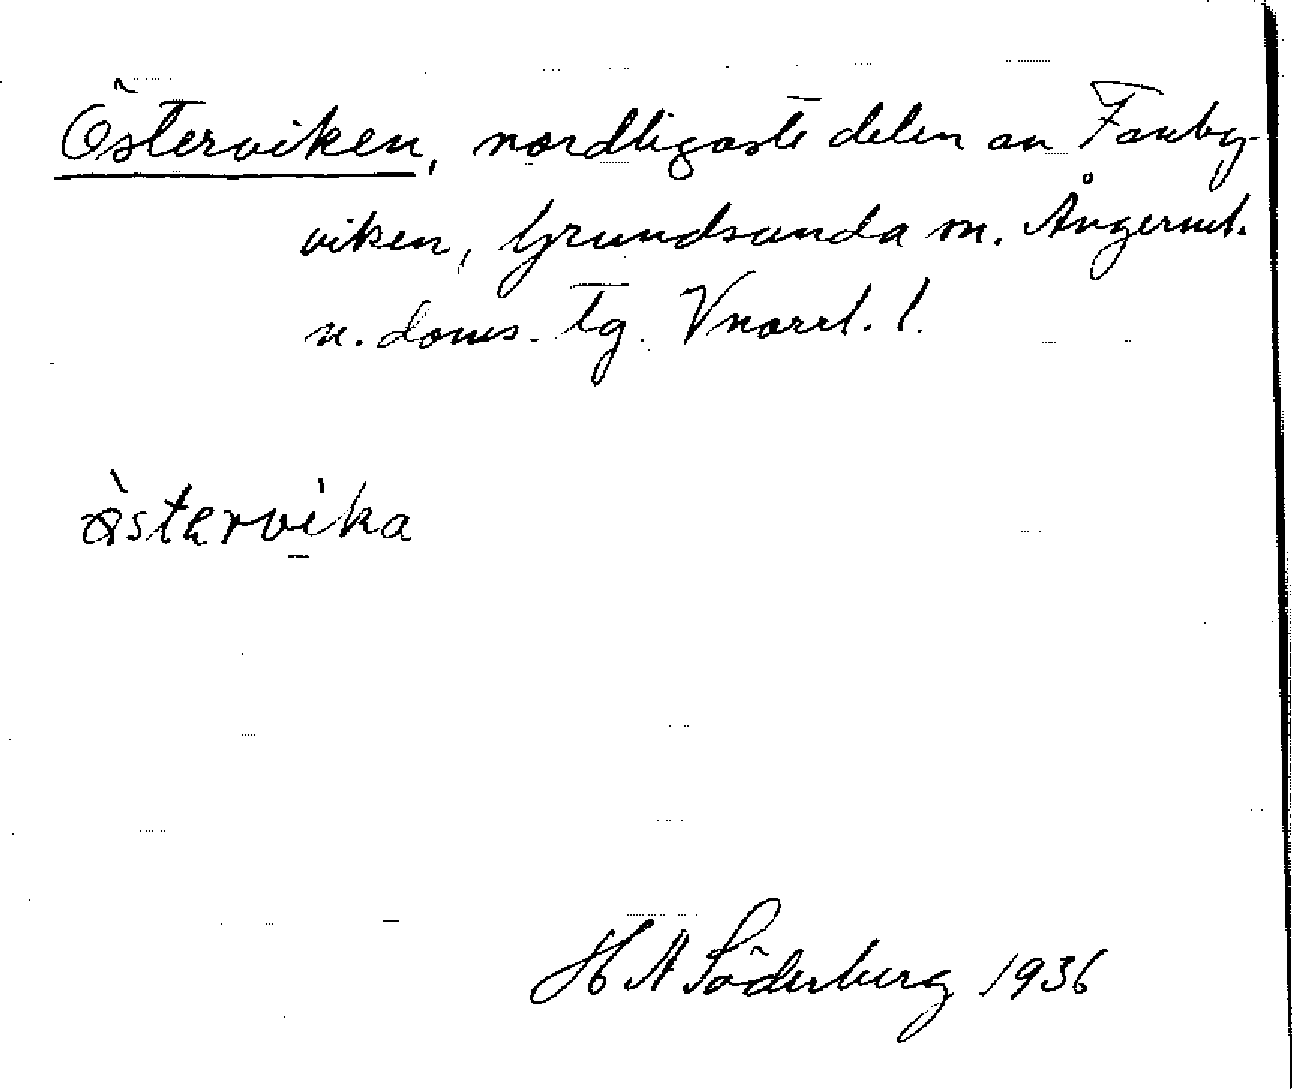 Österviken, nordligaste delen av Fanby-
viken, Grundsunda sn. Ångerml.
n. doms. tg. Vnorrl. l.
östervika
H A Söderberg 1936